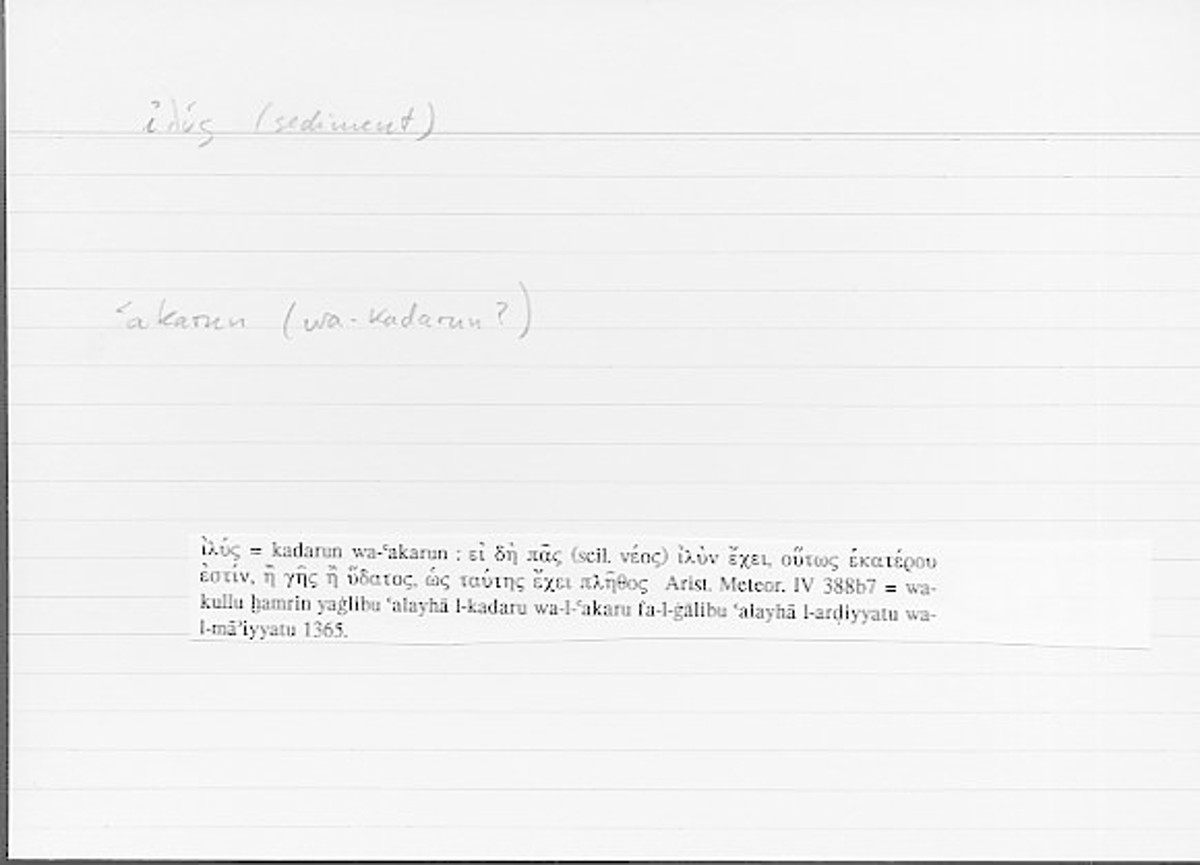 ἰλύς (sediment)
ʿakarun (wa-kadarun?)
ἰλύς = kadarun wa-ʿakarun : εἰ δὴ πᾶς (scil. νέος) ἰλὺν ἔχει, οὕτως ἑκατέρου
ἐστίν, ἢ γῆς ἢ ὕδατος, ὡς ταύτης ἔχει πλῆθος Arist. Meteor. IV 388b7 = wa-
kullu ḫamrin yaġlibu ʿalayhā l-kadaru wa-l-ʿakaru fa-l-ġālibu ʿalayhā l-arḍiyyatu wa-
l-māʾiyyatu 1365.